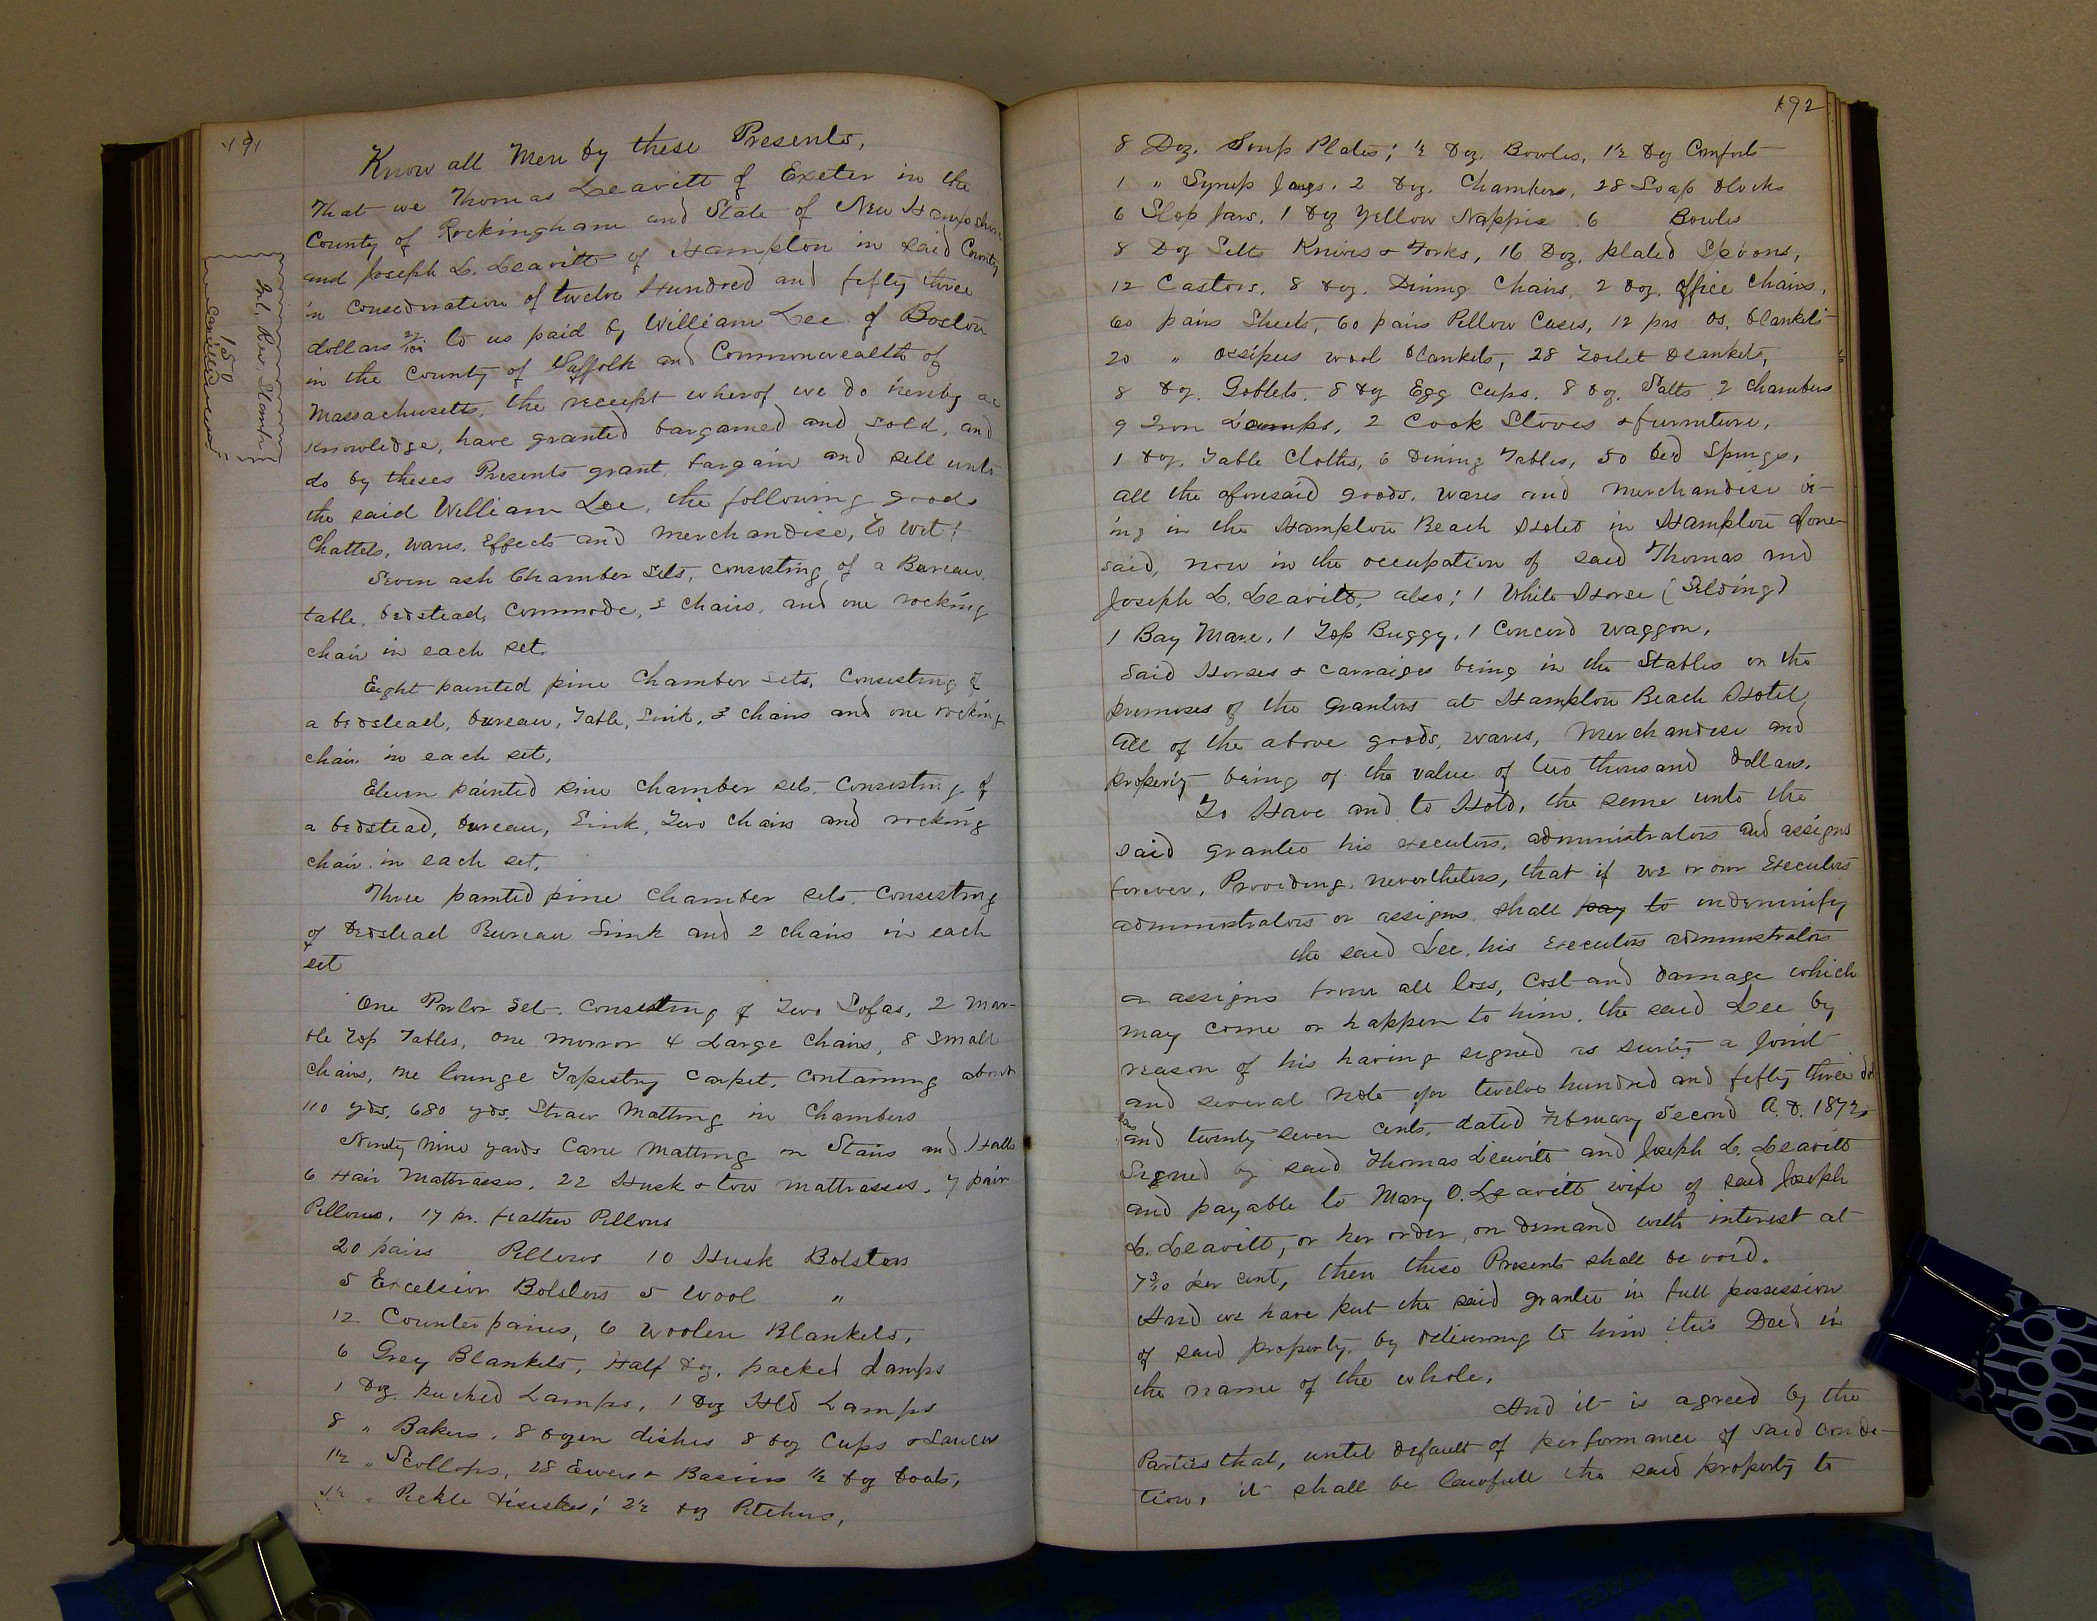 191
Know all Men by these Presents,
That we Thomas Leavitt of Exeter in the
County of Rockingham and State of New Hampshire
and Joseph L. Leavitt of Hampton in said County
in consideration of twelve Hundred and fifty three
dollars 27/100 to us paid by William Lee of Boston
in the County of Suffolk and Commonwealth of
Massachusetts, the receipt wherof we do hereby ac
knowledge, have granted bargained and sold, and
do by theses Presents grant, bargain and sell unto
the said William Lee, the following goods
Chattels, wares, Effects and merchandise, to wit:
Seven ash Chamber Sets, consisting of a Bureau,
table, bedstead, Commode, 3 chairs, and one rocking
chair in each set.
Eight painted pine Chamber sets, Consisting of
a bedstead, bureau, Table, Sink, 3 chairs and one rocking
chair in each set,
Eleven painted pine chamber sets. Consisting of
a bedstead, bureau, Sink, Two chairs and rocking
chair in each set,
Three painted pine chamber sets. Consisting
of Bedstead Bureau Sink and 2 chairs in each
set
One Parlor Set. Consisting of Two Sofas, 2 Mar-
ble Top Tables, one mirror 4 Large Chairs, 8 Small
chairs, one lounge Tapestry Carpet, Containing about
110 yds, 680 yds. Straw Matting in Chambers
Ninety Nine yards Cane Matting on Stairs and Halls
6 Hair Mattrasses, 22 Husk & tow mattrasses, 7 pair
Pillows, 17 pr. feather Pillows
20 pairs Pillows 10 Husk Bolsters
5 Excelsior Bolsters 5 Wool "
12 Counterpaines, 6 Woolen Blankets,
6 Grey Blankets, Half doz. packed Lamps
1 doz. Lamps, 1 Doz Hld Lamps
8 " Bakers, 8 dozen dishes 8 doz Cups & Saucers
1½ " Scollops, 28 Ewers & Basins ½ doz boats,
1½ " Pickle dishes; 2½ doz Pitchers,
Int. Rev. Stamp
150
Cancelled
192
8 Doz. Soup Plates; ½ doz. Bowles, 1½ doz Comforts
1 " Syrup Jugs. 2 doz. Chambers, 28 Soap blocks
6 Slop Jars, 1 doz Yellow Nappie 6 Bowles
8 Doz Setts Knives & Forks, 16 Doz. plated Spoons,
12 Castors, 8 doz. Dining Chairs, 2 doz. Office Chairs,
60 pairs Sheets, 60 pairs Pillow Cases, 12 prs Os, blankets
20 " Ossipus wool blankets, 28 Toilet blankets,
8 doz. Goblets, 8 doz Egg Cups, 8 doz. Salts 2 chambers
9 Iron Lamps, 2 Cook Stoves & furniture,
1 doz. Table Cloths, 6 Dining Tables, 50 bed Springs,
all the aforesaid goods, wares and merchandise be-
ing in the Hampton Beach Hotel in Hampton afore-
said, now in the occupation of said Thomas and
Joseph L. Leavitt, also; 1 White Horse (Gelding)
1 Bay Mare, 1 Top Buggy, 1 Concord Waggon,
said Horses & carraiges being in the Stables on the
premises of the grantors at Hampton Beach Hotel
all of the above goods, wares, merchandise and
property being of the value of two thousand dollars.
To Have and to Hold, the same unto the
said grantee his executors, administrators and assigns
forever, Providing nevertheless, that if we or our Executors
administrators or assigns shall pay to indemnify
the said Lee, his Executors administrators
or assigns from all loss, cost and damage which
may come or happen to him, the said Lee by
reason of his having signed as surity a joint
and several note for twelve hundred and fifty three dol
lars and twenty seven cents, dated February Second A.D. 1872,
signed by said Thomas Leavitt and Joseph L. Leavitt
and payable to Mary O. Leavitt wife of said Joseph
L. Leavitt, or her order, on demand with interest at
7 3/10 per cent, then these Presents shall be void.
And we have put the said grantee in full possession
of said property by delivering to him this Deed in
the name of the whole.
And it is agreed by the
Parties that, until default of performance of said condi-
tion, it shall be lawfull the said property to